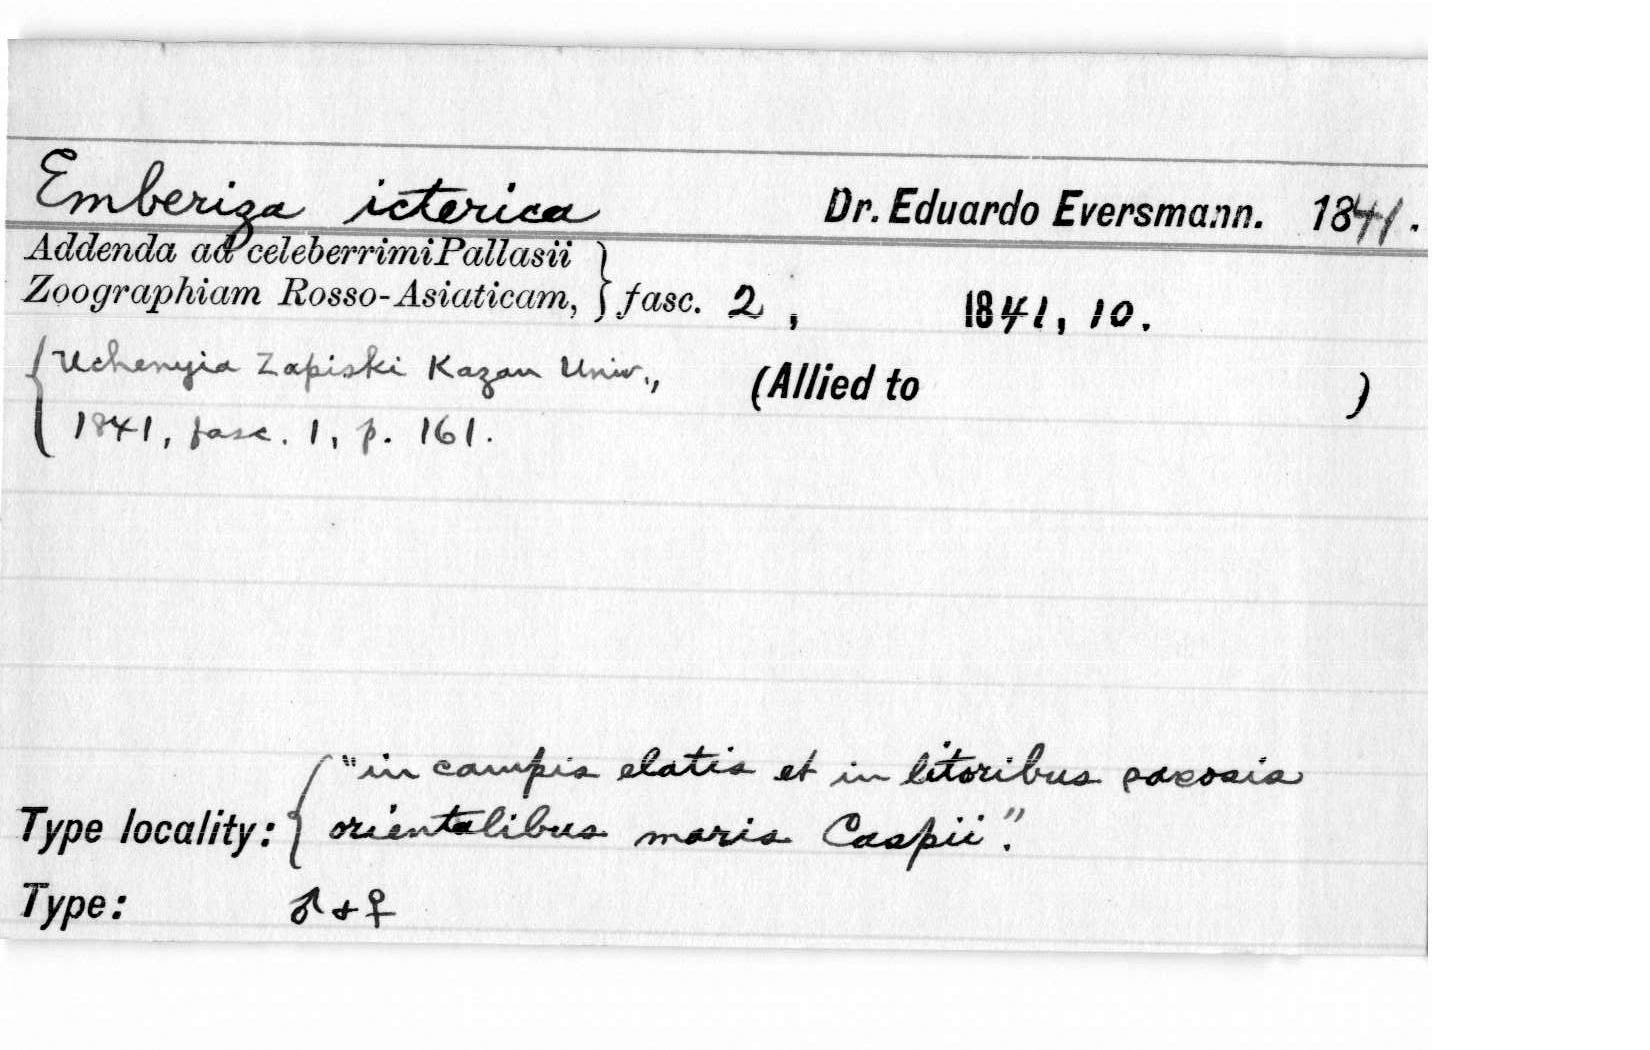 Emberiza icterica Dr. Eduardo Eversmann. 1841.
Addenda ad celeberrimi Pallasii
Zoographiam Rosso-Asiaticam, } fasc. 2, 1841, 10.
{ Uchenyia Zapiski Kazan Univ., (Allied to )
1841, fasc. 1, p. 161.
"in campis elatis et in litoribus saxosis
Type locality: { orientalibus maris Caspii".
Type: ♂ + ♀